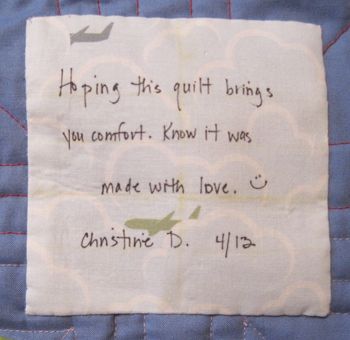 Hoping this quilt brings
you comfort. Know it was
made with love. ☺
Christine D. 4/12